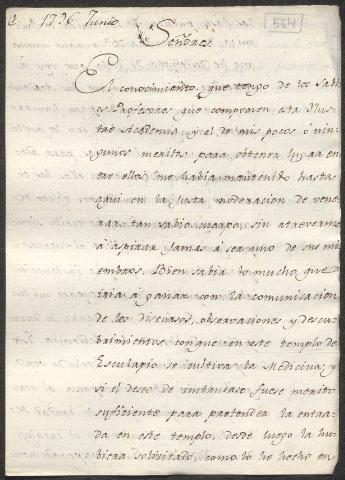 1796 Junio
564
Señores
El conocimiento, que tengo de los Sabi-
os Profesores que componen esta Ilus-
tre Academia, y el de mis pocos ó nin-
gunos meritos para obtener lugar en-
tre ellos, me habia mantenido hasta
aqui en la justa moderacion de vene-
rar tan sabio cuerpo, sin atreverme
á aspirar jamas á ser uno de sus mi-
embros. Bien sabia lo mucho, que
iria á ganar con la comunicacion
de los discursos, observaciones, y descu-
brimientos conque en este templo de
Esculapio se cultiva la Medicina; y
si el deseo de instruirse fuese merito
suficiente para pretender la entra-
da en este templo, desde luego la hu-
biera solicitado, como lo he hecho en